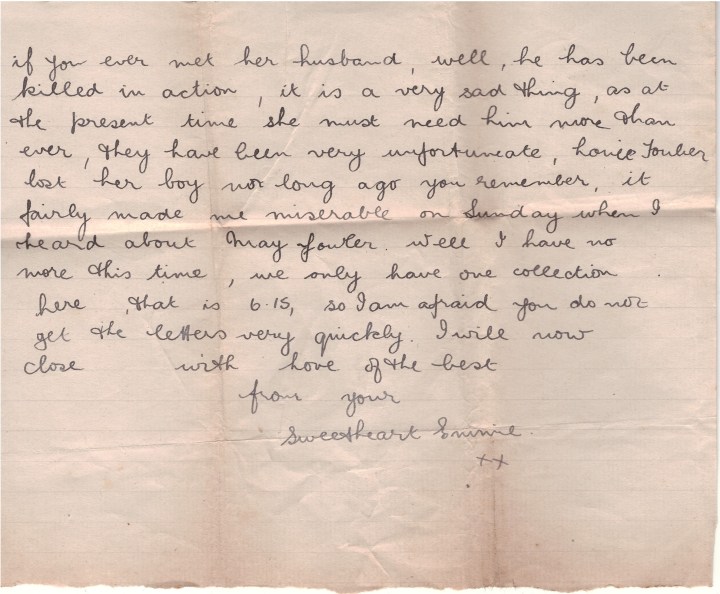 if you ever met her husband, well, he has been
killed in action, it is a very sad thing, as at
the present time she must need him more than
ever, they have been very unfortunate,
lost her boy not long ago you remember, it
fairly made me miserable on Sunday when I
heard about May Fowler. Well I have no
more this time, we only have one collection
here, that is 6.15, so I am afraid you do not
get the letters very quickly. I will now
close with love of the best
from your
Sweetheart Emmie.
xx